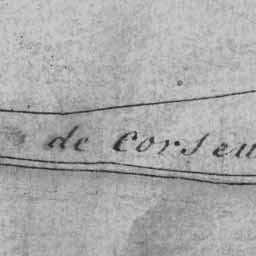 de corseu